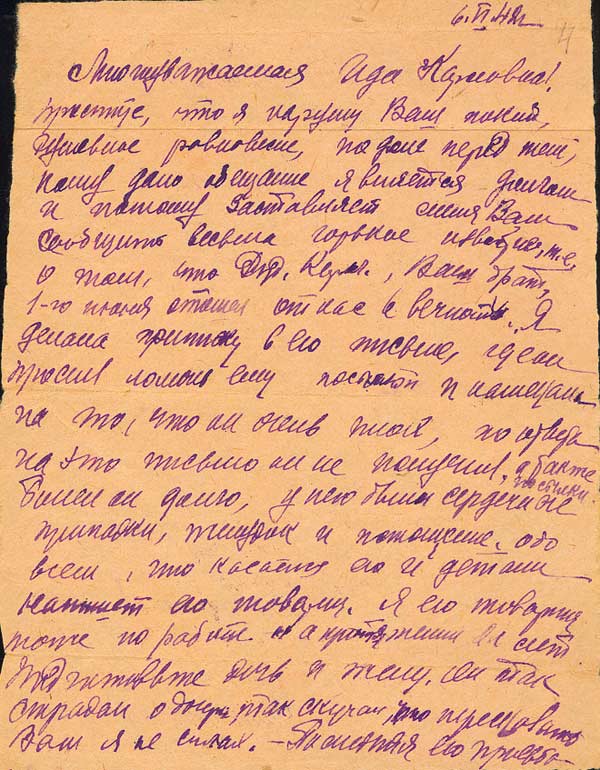 6.VI.42г
4
Многоуважаемая Ида Карловна!
простите, что я нарушу Ваш покой,
душевное равновесие, но долг перед тем,
кому дано обещание является
и потому заставляет меня Вам
сообщить весьма горькое известие, т.е.
о том, что Эдд. Карл., Ваш брат,
1-го июня отошел от нас в вечность. Я
делала приписку в его письме, где он
просил помочь ему посылкой и
на то, что он очень плох, но ответа
на это письмо он не получил, а также посылки
Болел он долго, у него были сердечные
припадки, желудок и истощение. Обо
всем, что касается его и детали
напишет его товарищ. Я его товарищ
тоже по работе
дочь и жену. Он так
страдал о дочери, так скучал, что пересказать
Вам я не в силах. – Последняя его просьба